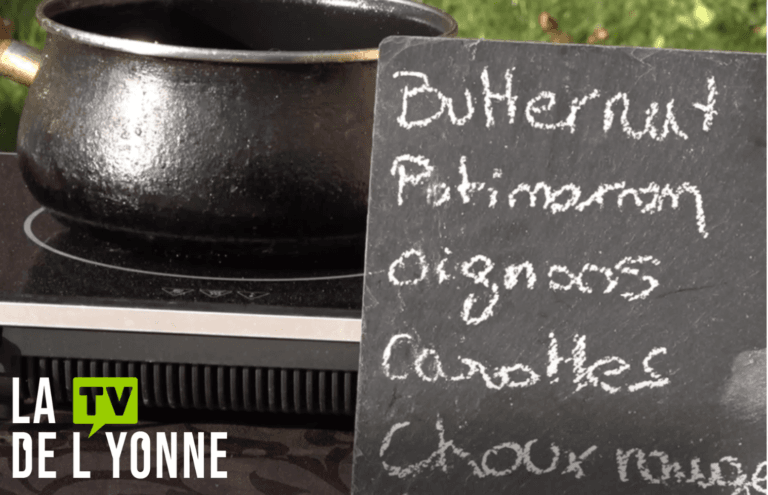 Butternut
Potimarron
oignons
Carottes
Choux rouge
LA TV
DE L YONNE